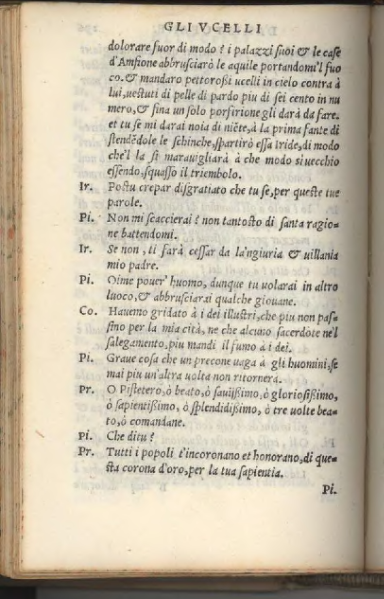 GLI VCELLI
dolorare fuor di modo? i palazzi suoi & le case
d'Amfione abbrusciarò le aquile portandomi'l fuo
co. & mandaro pettoroßi ucelli in cielo contra à
lui, uestuti di pelle di pardo piu di sei cento in nu
mero, & sina un solo porfirione gli darà da fare.
et tu se mi darai noia di niẽte, à la prima fante di
stendẽdole le schinche, spartirò essa Iride, di modo
che'l la si marauigliarà à che modo si uecchio
essendo, squasso il triembolo.
Ir. Postu crepar disgratiato che tu se, per queste tue
parole.
Pi. Non mi scaccierai? non tantosto di santa ragio=
ne battendomi.
Ir. Se non, ti farà cessar da la'ngiuria & uillania
mio padre.
Pi. Oime pouer'huomo, dunque tu uolarai in altro
luoco, & abbrusciarai qualche giouane.
Co. Hauemo gridato à i dei illustri, che piu non pas=
sino per la mia cità, ne che alcuno sacerdote ne'l
salegamento, piu mandi il fumo à i dei.
Pi. Graue cosa che un precone uaga à gli huomini, se
mai piu un'altra uolta non ritornera.
Pr. O Pistetero, ò beato, ò sauißimo, ò gloriosißimo,
ò sapientißimo, ò splendidißimo, ò tre uolte bea=
to, ò comandane.
Pi. Che ditu?
Pr. Tutti i popoli t'incoronano et honorano, di que=
sta corona d'oro, per la tua sapientia.
Pi.